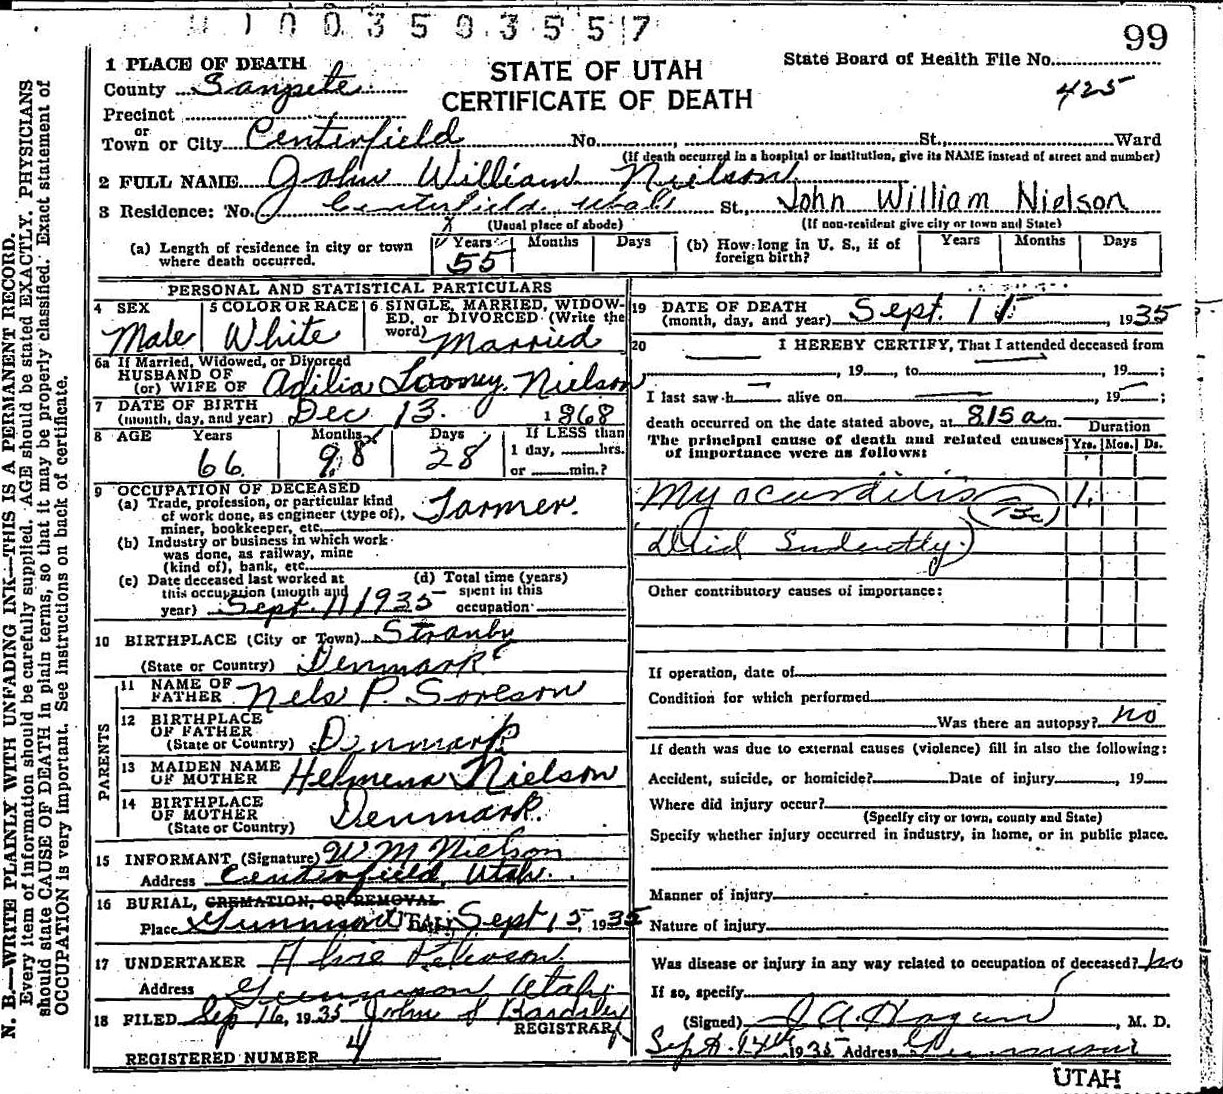 99
1 PLACE OF DEATH
STATE OF UTAH
CERTIFICATE OF DEATH
State Board of Health File No.
425
County Sanpete
Precinct
or
Town or City Centerfield No. , St., Ward
(If death occurred in a hospital or institution, give its NAME instead of street and number)
2 FULL NAME John William Nielson
3 Residence: No. Centerfield, Utah St., John William Nielson
(Usual place of abode) (If non-resident give city or town and State)
(a) Length of residence in city or town where death occurred. Years 55 Months Days
(b) How long in U. S., if of foreign birth? Years Months Days
PERSONAL AND STATISTICAL PARTICULARS
4 SEX Male
5 COLOR OR RACE White
6 SINGLE, MARRIED, WIDOWED, or DIVORCED (Write the word) Married
6a If Married, Widowed, or Divorced
HUSBAND OF
(or) WIFE OF Nielson
7 DATE OF BIRTH
(month, day, and year) Dec 13. 1868
8 AGE Years 66 Months 8 Days 28 If LESS than
1 day, hrs.
or min.?
9 OCCUPATION OF DECEASED
(a) Trade, profession, or particular kind
of work done, as engineer (type of),
miner, bookkeeper, etc. Farmer.
(b) Industry or business in which work
was done, as railway, mine
(kind of), bank, etc.
(c) Date deceased last worked at
this occupation (month and
year) Sept. 11 1935
(d) Total time (years)
spent in this
occupation
10 BIRTHPLACE (City or Town) Stranby
(State or Country) Denmark
PARENTS
11 NAME OF
FATHER Nels P. Sorleson
12 BIRTHPLACE
OF FATHER
(State or Country) Denmark
13 MAIDEN NAME
OF MOTHER Nielson
14 BIRTHPLACE
OF MOTHER
(State or Country) Denmark.
15 INFORMANT (Signature) W M Nielson
Address Centerfield, Utah.
16 BURIAL, CREMATION, OR REMOVAL
Place Gunnison Sept 15, 1935
17 UNDERTAKER
Address Gunnison Utah
18 FILED Sep 16, 1935 John S Bardsley
REGISTRAR
REGISTERED NUMBER 4
19 DATE OF DEATH
(month, day, and year) Sept. 11 1935
20 I HEREBY CERTIFY, That I attended deceased from
, 19 to , 19 ;
I last saw h alive on , 19 ;
death occurred on the date stated above, at 815 a m.
The principal cause of death and related causes
of importance were as follows:
Duration
Yrs. Mos. Ds.
Myocarditis 1.
Other contributory causes of importance:
If operation, date of
Condition for which performed
Was there an autopsy? no
If death was due to external causes (violence) fill in also the following:
Accident, suicide, or homicide? Date of injury , 19
Where did injury occur?
(Specify city or town, county and State)
Specify whether injury occurred in industry, in home, or in public place.
Manner of injury
Nature of injury
Was disease or injury in any way related to occupation of deceased? no
If so, specify
(Signed) J. A. Hagan , M. D.
Sept. 14th 1935 Address Gunnison
UTAH
N. B.—WRITE PLAINLY WITH UNFADING INK—THIS IS A PERMANENT RECORD.
Every item of information should be carefully supplied. AGE should be stated EXACTLY. PHYSICIANS
should state CAUSE OF DEATH in plain terms, so that it may be properly classified. Exact statement of
OCCUPATION is very important. See instructions on back of certificate.